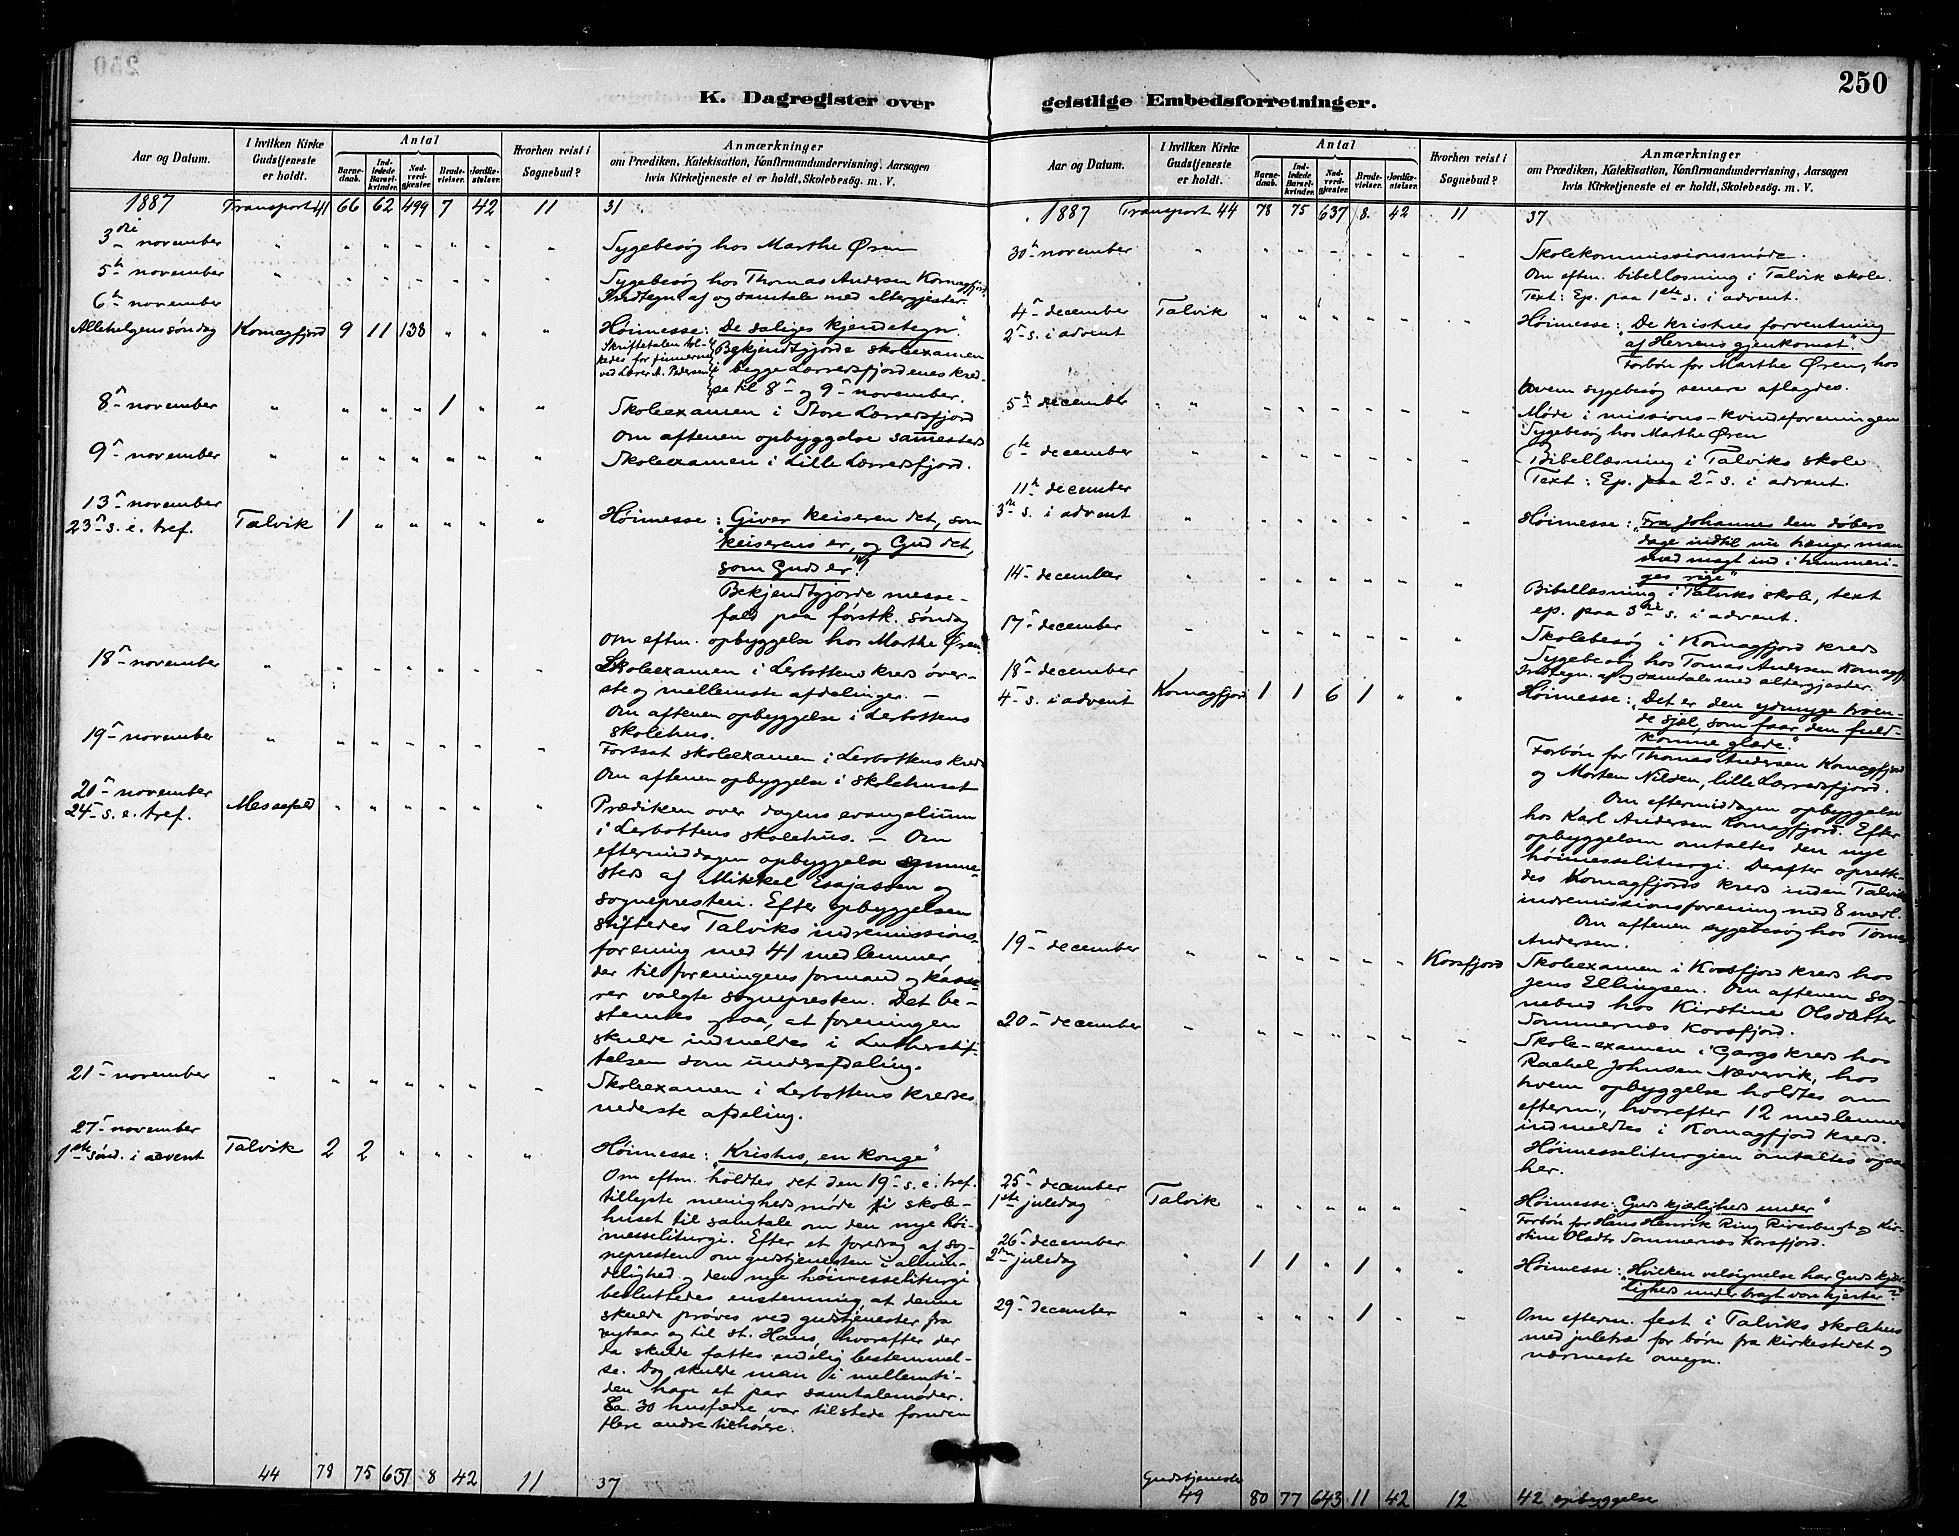 250
K. Dagregister over
Aar og Datum.
I hvilken Kirke Gudstjeneste er holdt.
Antal
Barnedaab.
Indledede Barselkvinder.
Nadverdgjester.
Brudevielser.
Jordfæstelser.
Hvorhen reist i Sognebud?
Anmærkninger
om Prædiken, Katekisation, Konfirmandundervisning, Aarsagen
hvis Kirketjeneste ei er holdt, Skolebesøg. m. V.
1887 Transport 41 66 62 499 7 42 11 31
3die november " " " " " " " Sygebesøg hos Marthe Øren
5te november " " " " " " " Sygebesøg hos Thomas Andersen Komagfjord.
6te november Indtegn. af og samtale med altergjester.
Allehelgens søndag Komagfjord 9 11 138 " " " Høimesse: "De saliges kjendetegn".
Skriftetalen tolkedes for finnerne ved Lærer A. Pedersen
Bekjendtgjorde skoleexamen
i begge Lerresfjordenes kred-
se til 8de og 9de november.
8de november " " " " 1 " " Skoleexamen i Store Lerresfjord
Om aftenen opbyggelse samesteds
9de november " " " " " " " Skoleexamen i Lille Lerresfjord.
13de november
23de s. e. tref. Talvik 1 " " " " " Høimesse: "Giver keiseren det, som
keiserens er, og Gud det,
som Guds er!"
Bekjendtgjorde messe-
fald paa førstk. søndag
Om eftm. opbyggelse hos Marthe Øren
18de november " " " " " " " Skoleexamen i Lerbottens kreds øver-
ste og mellemste afdelinger. —
Om aftenen opbyggelse i Lerbottens
skolehus.
19de november " " " " " " " Fortsat skoleexamen i Lerbottens kreds
Om aftenen opbyggelse i skolehuset
20de november
24de s. e. tref. Messefald " " " " " " Prædiken over dagens evangelium
i Lerbottens skolehus. — Om
eftermiddagen opbyggelse samme-
steds af Mikkel Esajassen og
sognepresten. Efter opbyggelsen
stiftedes Talviks indremissions-
forening med 41 medlemmer
der til foreningens formand og kasse-
rer valgte sognepresten. Det be-
stemtes ogsaa, at foreningen
skulde indmeldes i Lutherstif-
telsen som underafdeling.
21de november " " " " " " " Skoleexamen i Lerbottens kredses
nederste afdeling.
27de november
1ste sønd. i advent Talvik 2 2 " " " " Høimesse: "Kristus, en konge"
Om eftm. holdtes det den 19de s. e. tref.
tillyste menighedsmøde i skole-
huset til samtale om den nye høi-
messeliturgi. Efter et foredrag af sog-
nepresten om gudstjenesten i almin-
delighed og den nye høimesseliturgi
besluttedes enstemmig at denne
skulde prøves ved gudstjenester fra
nytaar og til st. Hans, hvorefter der
da skulde fattes endelig bestemmel-
se. Dog skulde man i mellemti-
den have et par samtalemøder.
Ca. 30 husfædre var tilstede foruden
flere andre tilhørere.
44 78 75 637 8 42 11 37
250
geistlige Embedsforretninger.
Aar og Datum.
I hvilken Kirke Gudstjeneste er holdt.
Antal
Barnedaab.
Indledede Barselkvinder.
Nadverdgjester.
Brudevielser.
Jordfæstelser.
Hvorhen reist i Sognebud?
Anmærkninger
om Prædiken, Katekisation, Konfirmandundervisning, Aarsagen
hvis Kirketjeneste ei er holdt, Skolebesøg. m. V.
1887 Transport 44 78 75 637 8 42 11 37
30te november " " " " " " " Skolekommissionsmøde.
Om eftm. bibellæsning i Talvik skole.
Text: Ep. paa 1ste s. i advent.
4de december Talvik " " " " " " Høimesse: "De kristnes forventning
2den s. i advent af Herrens gjenkomst".
Forbøn for Marthe Øren, hos
hvem sygebesøg senere aflagdes.
5te december " " " " " " " Møde i missions-kvindeforeningen
Sygebesøg hos Marthe Øren
6te december " " " " " " Bibellæsning i Talviks skole
Text: Ep. paa 2den s. i advent.
11te december
3die s. i advent " " " " " " " Høimesse: "Fra Johannes den døbers
dage indtil nu trænger man
med magt ind i himmeri-
ges rige"
14de december " " " " " " " Bibellæsning i Talviks skole, text
ep. paa 3die s. i advent.
17de december " " " " " " " Skolebesøg i Komagfjord kreds
Sygebesøg hos Tomas Andersen Komagfj.
18de december Indtegn. af og samtale med altergjester.
4de s. i advent Komagfjord 1 1 6 1 " " Høimesse: "Det er den ydmyge troen-
de sjæl, som faar den fuld-
komne glæde."
Forbøn for Thomas Andersen Komagfjord
og Morten Nilsen, lille Lerresfjord.
Om eftermiddagen opbyggelse
hos Karl Andersen Komagfjord. Efter
opbyggelsen omtaltes den nye
høimesseliturgi. Derefter opret-
tes Komagfjords kreds inden Talviks
indremissionsforening med 8 medl.
Om aftenen sygebesøg hos Tomas
Andersen.
19de december " " " " " " Korsfjord Skoleexamen i Korsfjord kreds hos
Jens Ellingsen. Om aftenen sog-
nebud hos Kirstine Olsdatter
Sommernæs Korsfjord.
20de december " " " " " " " Skole-examen i Gargs kreds hos
Rachel Johnsen Nævervik, hos
hvem opbyggelse holdtes om
efterm., hvorefter 12 medlemmer
indmeldtes i Komagfjord kreds.
Høimesseliturgien omtaltes ogsaa
her.
25de december
1ste juledag Talvik " " " " " " Høimesse: "Guds kjærligheds under"
Forbøn for Hans Henrik Ring Riverbugt og Kir-
stine Olsdtr Sommernæs Korsfjord.
26de december
2den juledag " 1 1 " 1 " " Høimesse: "Hvilken velsignelse har Guds kjær-
ligheds under bragt vore hjerter?"
29de december " " " " 1 " " Om efterm. fest i Talviks skolehus
med juletræ for børn fra kirkestedet og
nærmeste omegn.
Gudstjenester
49 80 77 643 11 42 12 42 opbyggelse